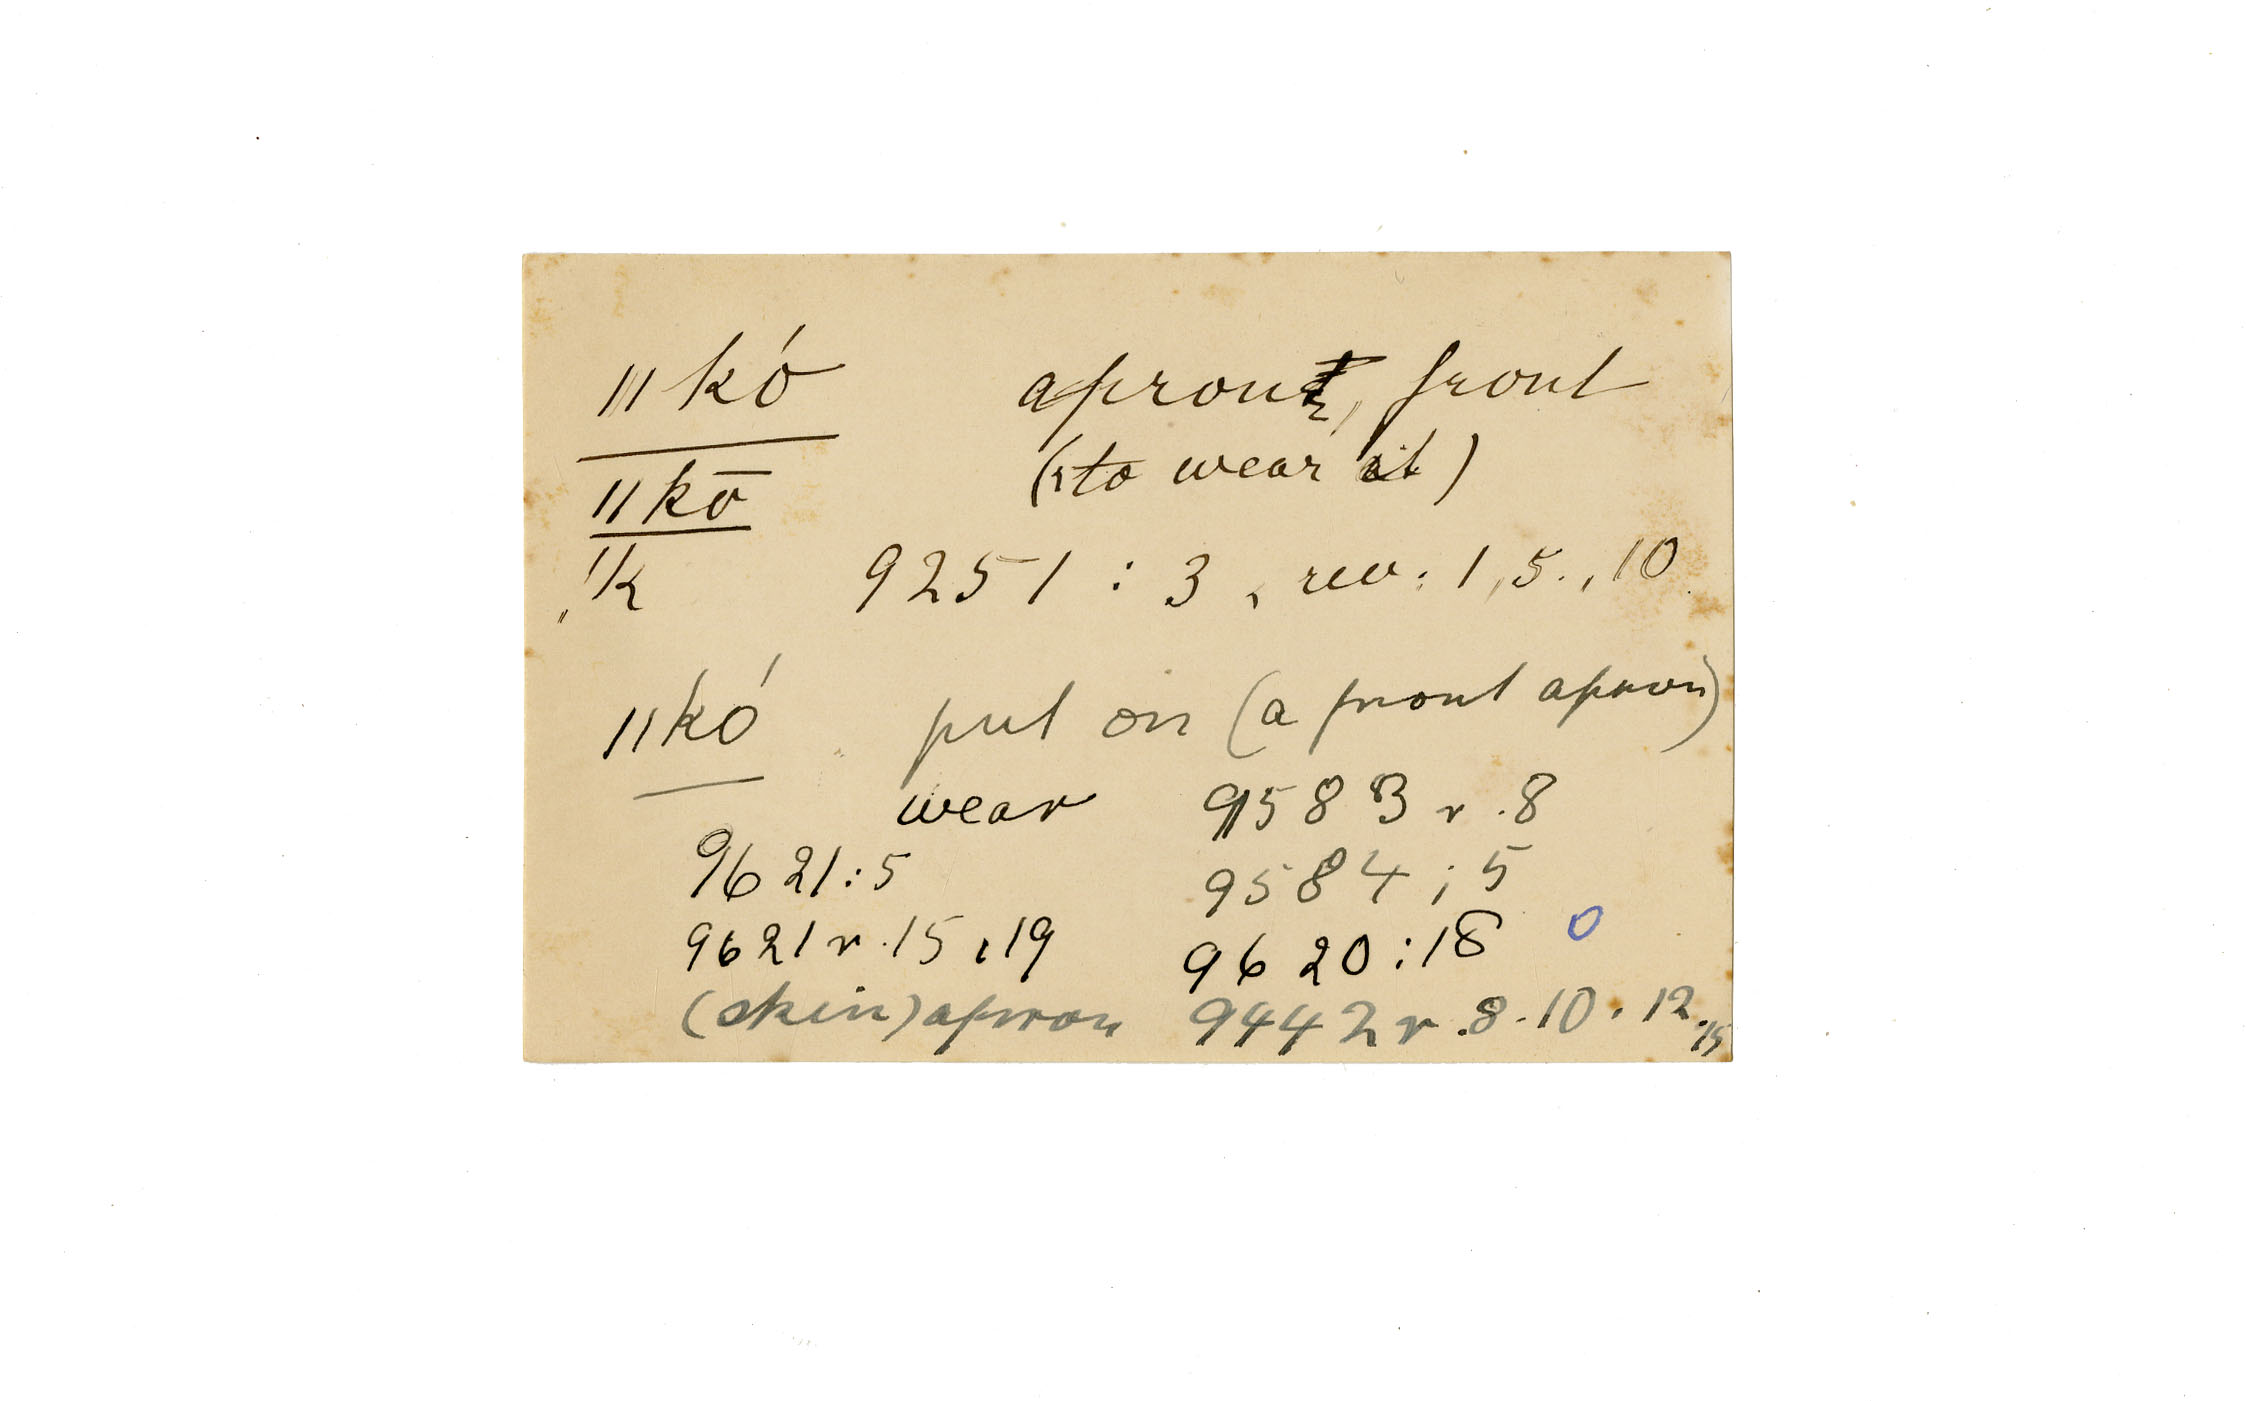 ǁkó apron, front
ǁkō (to wear it)
!k 9251 : 3, rev: 1, 5., 10
ǁkó put on (a front apron)
wear 9583 r .8
9621:5 9584 ; 5
9621 r .15, 19 9620:18 0
(skin) apron 9442 r .8.10.12.15